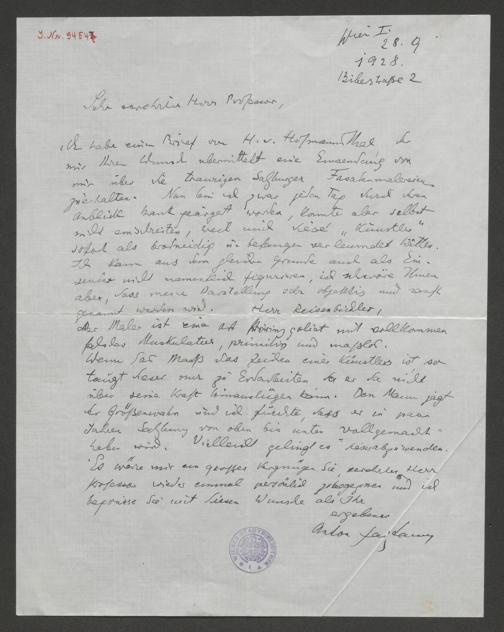 J. Nr. 94547
Wien I.
28. 9.
1928.
Biberstraße 2
Sehr verehrter Herr Professor,
Ich habe einen Brief von H. v. Hofmannsthal der
mir Ihren Wunsch übermittelt eine Einsendung von
mir über die traurigen Salzburger Fassadenmalereien
zu erhalten. Nun bin ich zwar jeden Tag durch den
Anblick krank geärgert worden, konnte aber selbst
nicht einschreiten, weil mich diese "Künstler"
sofort als brotneidig verleumdet hätten.
Ich kann aus dem gleichen Grunde auch als Ein-
sender nicht namentlich figurieren, ich schwöre Ihnen
aber, dass meine Darstellung sehr objektiv und sanft
genannt werden wird. Herr Reisenbichler,
der Maler ist eine Art mit vollkommen
Muskulatur, primitiv und maßlos.
Wenn das Maaß das Zeichen eines Künstlers ist so
taugt dieser nur zu Erdarbeiten wo er sie nicht
über seine Kraft hinaustragen kann. Den Mann jagt
der Größenwahn und ich fürchte, dass er in paar
Jahren Salzburg von oben bis unten "vollgemacht"
haben wird. Vielleicht gelingt es das abzuwenden.
Es wäre mir ein grosses Vergnügen Sie, verehrter Herr
Professor wieder einmal persönlich zu und ich
begrüsse Sie mit diesem Wunsche als Ihr
ergebener
Anton Faistauer